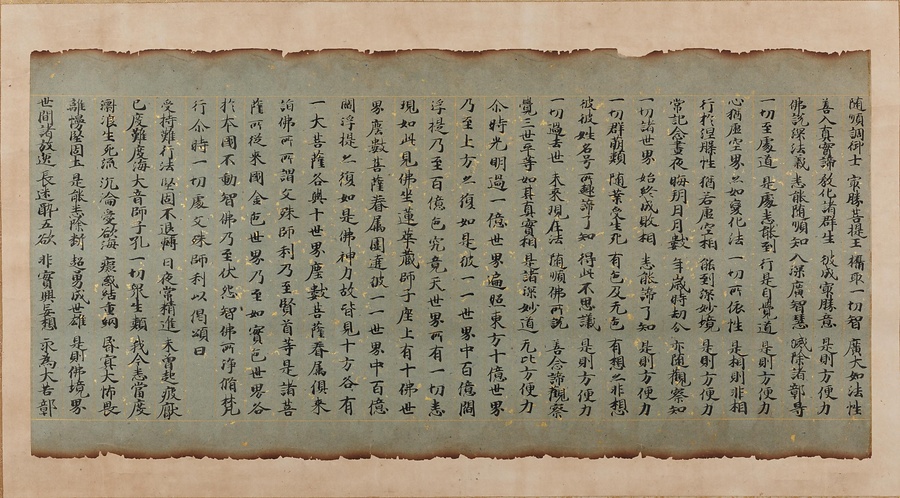 随順調御士 㝡勝菩提王 攝取一切智 廣大如法性
善入真實諦 教化諸群生 彼成㝡勝意 是則方便力
佛説深法義 悉能随順知 入深廣智慧 滅除諸鄣导
一切至處道 是處悉能到 行是自覺道 是則方便力
心猶虚空界 亦如變化法 一切所依性 是相則非相
行於涅槃性 猶若虚空相 能到深妙境 是則方便力
常記念晝夜 晦明月月數 年歳時劫分 亦随觀察知
一切諸世界 始終成敗相 悉能諦了知 是則方便力
一切群萌類 随業受生死 有色及无色 有想亦非想
彼彼姓名号 所趣諦了知 得此不思議 是則方便力
一切過去世 未来現在法 随順佛所説 善念諦觀察
覺三世平等 如其真實相 是諸深妙道 无比方便力
尒時光明過一億世界遍照東方十億世界
乃至上方亦復如是彼一一世界中百億閻
浮提乃至百億色究竟天世界所有一切悉
現如此見佛坐蓮華藏師子座上有十佛世
界塵數菩薩眷属圍遶彼一一世界中百億
閻浮提亦復如是佛神力故皆見十方各有
一大菩薩各與十世界塵數菩薩眷属俱来
詣佛所所謂文殊師利乃至賢首等是諸菩
薩所従来國金色世界乃至如實色世界各
於本國不動智佛乃至伏怨智佛所淨脩梵
行尒時一切處文殊師利以偈頌曰
受持難行法 堅固不退轉 日夜常精進 未曽起疲猒
已度難度海 大音師子吼 一切衆生類 我今悉當度
漂浪生死流 沉淪愛欲海 癡惑結重網 昬冥大怖畏
離壊堅固士 是能悉除斷 超勇成世雄 是則佛境界
世間諸放逸 長迷醉五欲 非實興妄想 永為大苦鄣